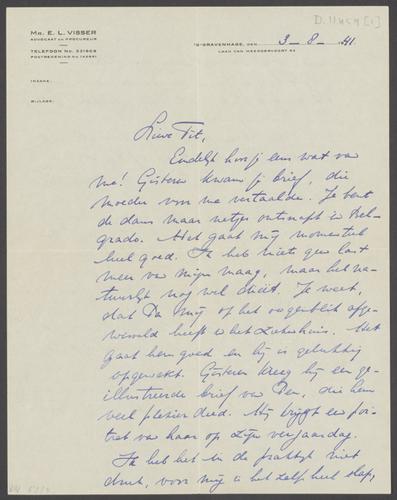 D. 11454 [1]
Mr. E. L. VISSER
ADVOCAAT EN PROCUREUR
TELEFOON No. 331608
POSTREKENING No. 142651
'S-GRAVENHAGE, DEN 3 – 8 – 41.
LAAN VAN MEERDERVOORT 84
INZAKE:
BIJLAGE:
Lieve Tit,
Eindelijk hoor je eens wat van
me! Gisteren kwam je brief, die
moeder voor me vertaalde. Je bent
de dans maar netjes ontsnapt in Bel-
grado. Het gaat mij momenteel
heel goed. Ik heb niets geen last
meer van mijn maag, maar het na-
tuurlijk nog wel dieet. Je weet,
dat Pa mij op het oogenblik afge-
wisseld heeft in het Ziekenhuis. Het
gaat hem goed en hij is gelukkig
opgewekt. Gisteren kreeg hij een ge-
illustreerde brief van Pen, die hem
veel plezier deed. Hij krijgt een por-
tret van haar op zijn verjaardag.
Ik heb het in de praktijk niet
druk, voor mij is het zelfs heel slap,